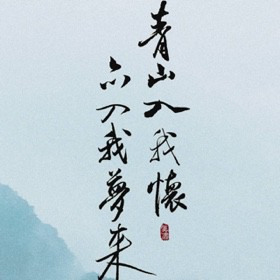 青山入我懷
亦入我夢來